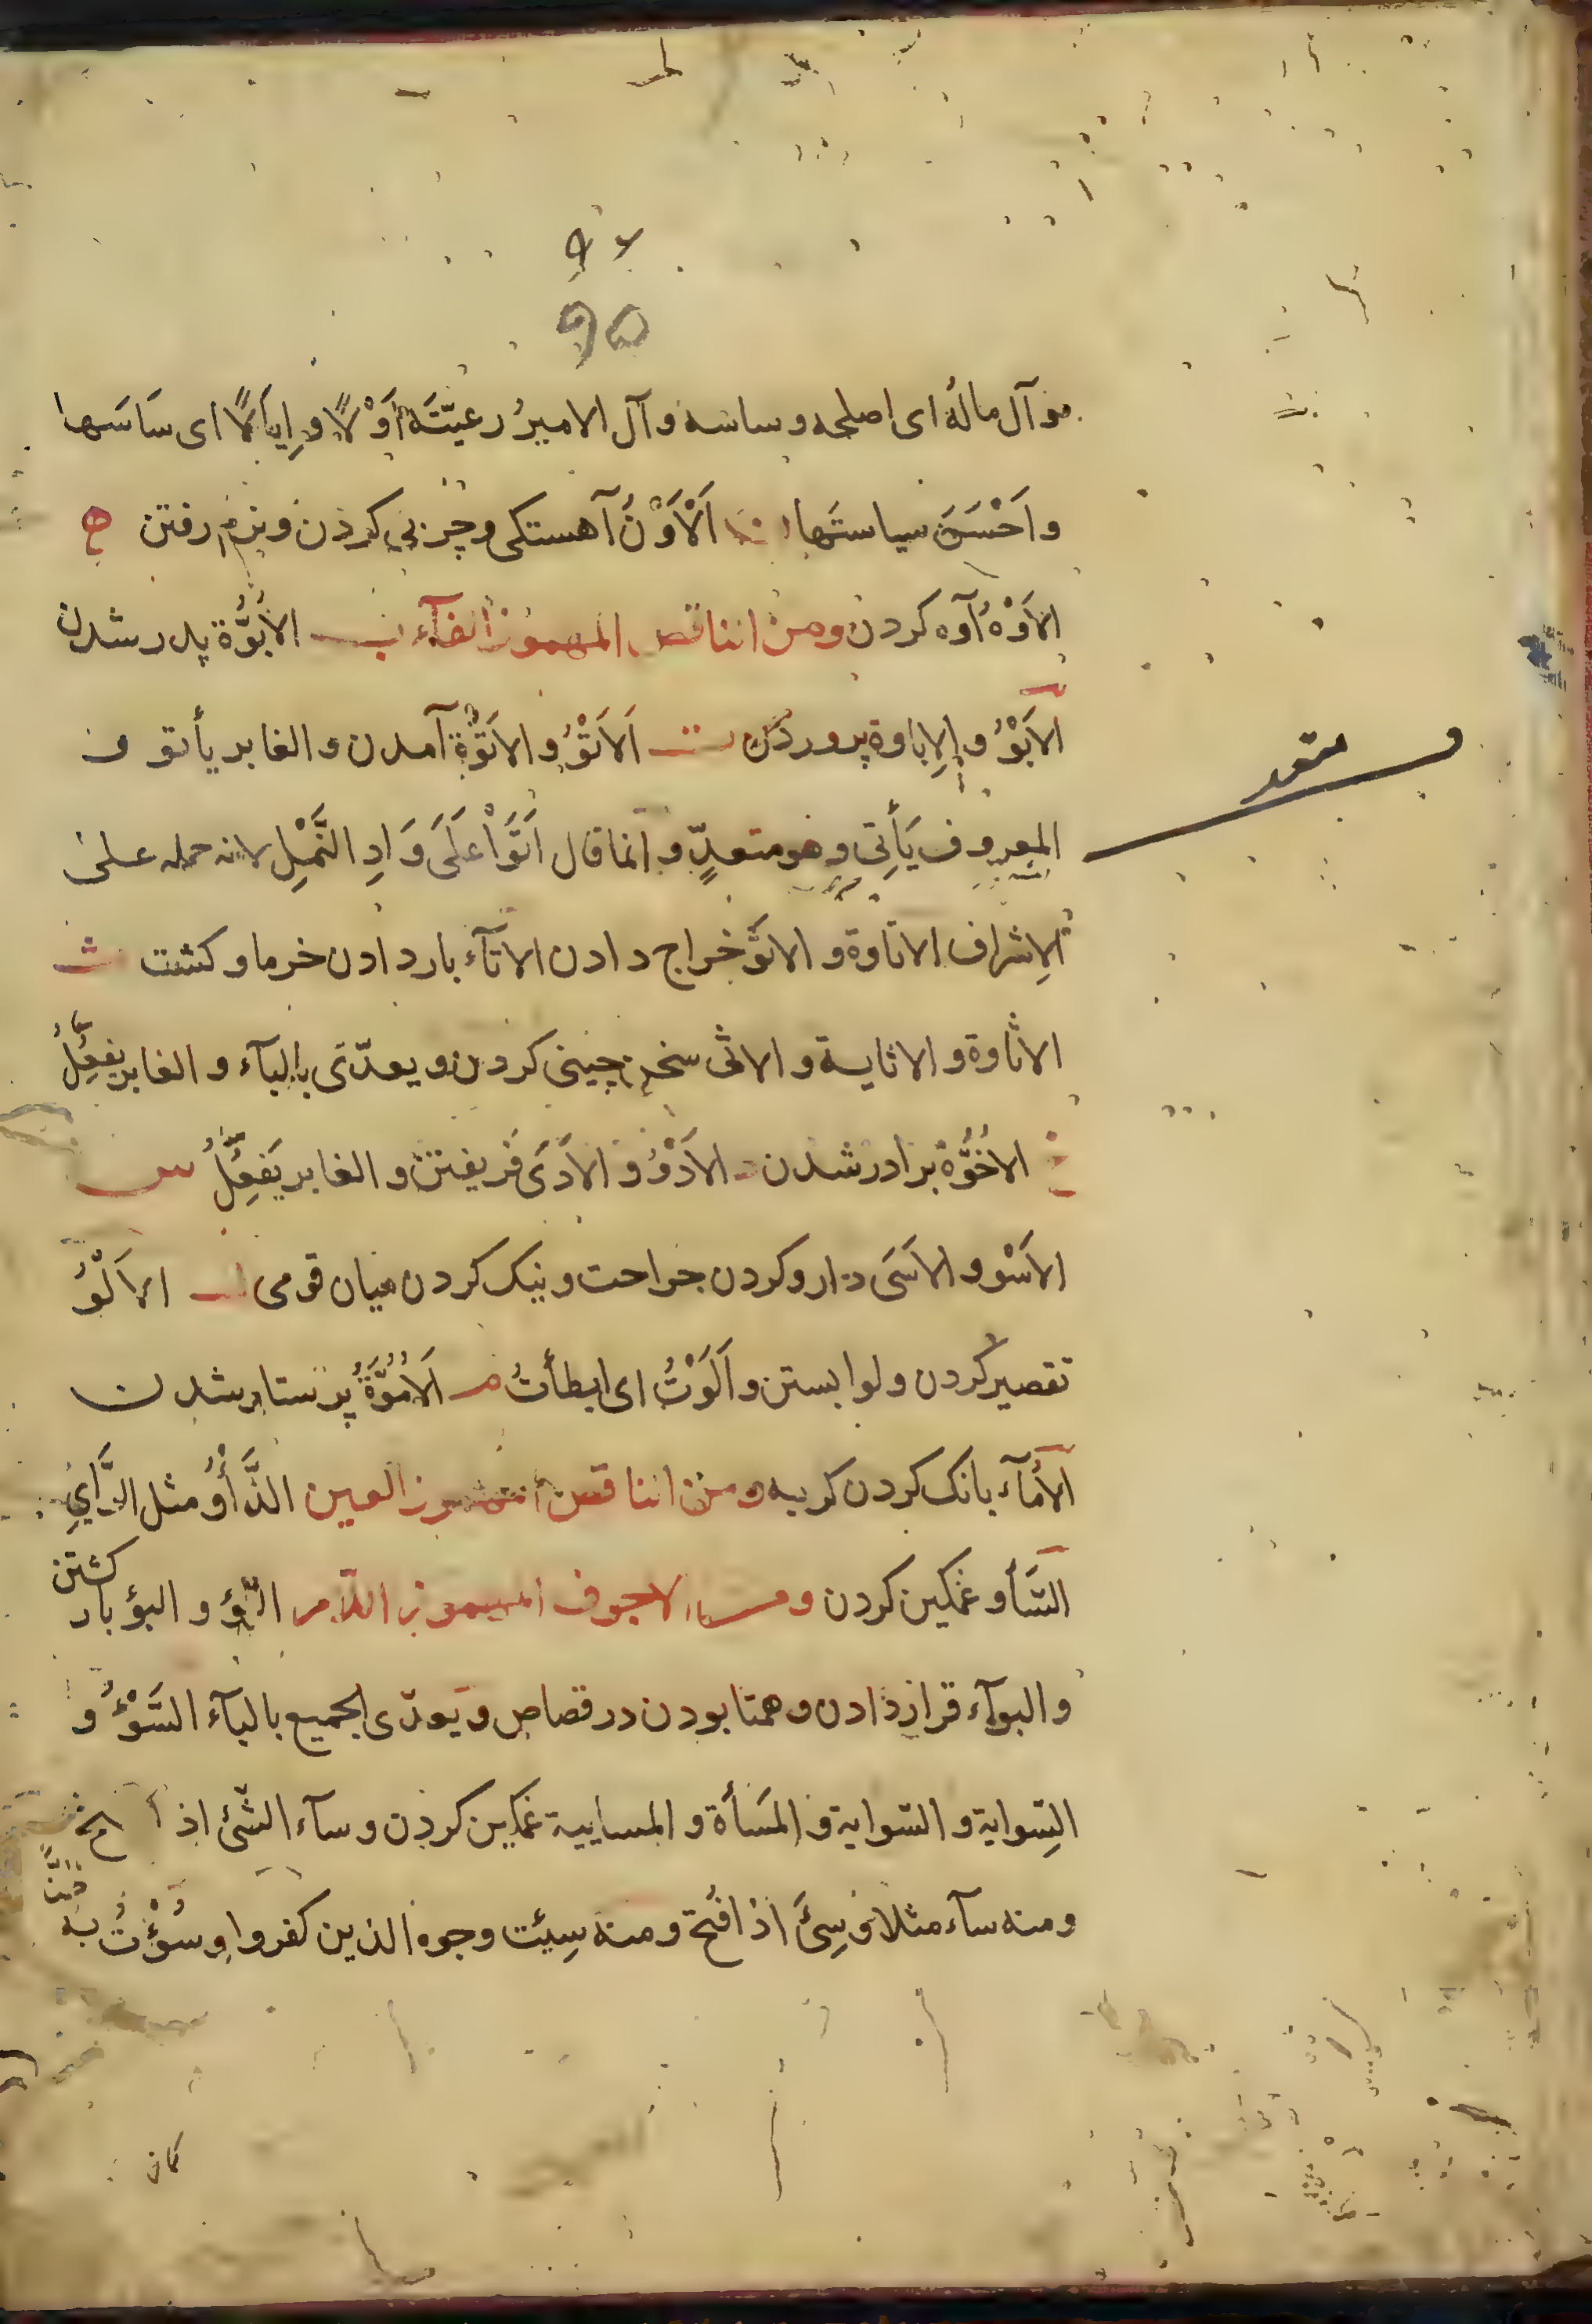 ۹۷
90
و آل ماله ای اصلحه و ساسه و آل الامیرُ رعیّتَه أَوْلًا و اِیالًا ای سَاسَها
و اَحْسَنَ سیاستَها ن اَلْاَوْنُ آهستکی و چربی کردن و بنرم رفتن ه
الاَوْهُ آوه کردن ومن الناقص المهموز الفآء ب الاُبُوَّة پدر شدن
الاَبْوُ و الاِباوة پروردن ت اَلاَتْوُ و الاَتْوَة آمدن و الغابر یأتو و
المعروف یَأتِی و هو متعدٍّ و انما قال اَتَوْا عَلَی وَادِ النَّمْلِ لانه حمله علی
الاِشراف الاتاوة و الاتْو خراج دادن الاتآء بار دادن خرما و کشت ث
الاثاوة و الاثایة و الاثی سخن چینی کردن و یعدّی بالبآء و الغابر یفعِلُ
خ الاُخُوَّة برادر شدن د الاَدْوُ و الاَدَی فریفتن و الغابر یَفعِلُ س
الاَسْو و الاَسَی دارو کردن جراحت و نیک کردن میان قومی ل الاَلْوُ
تقصیر کردن و لوا بستن و اَلَوْتُ ای ابطأتُ م اَلاُمُوَّةُ پرستار شدن
الاُمآء بانک کردن کربه ومن الناقص المهموز العین الدَّأوُ مثل الدَّایِ
السَّأو غمکین کردن ومن الاجوف المهموز اللام البَؤ و البؤ باز کشتن
و البوآء قرار دادن و همتا بودن در قصاص و یعدّی الجمیع بالبآء السَّوْءُ و
السِوایة و السّوایة و المَسأة و المساییة غمکین کردن و سآء الشّئ اذ
و منه سآء مثلا و سِئَ اذا قبح و منه سِیئت وجوه الذین کفروا و سُؤْتُ به ظنًّا
کان
متعد